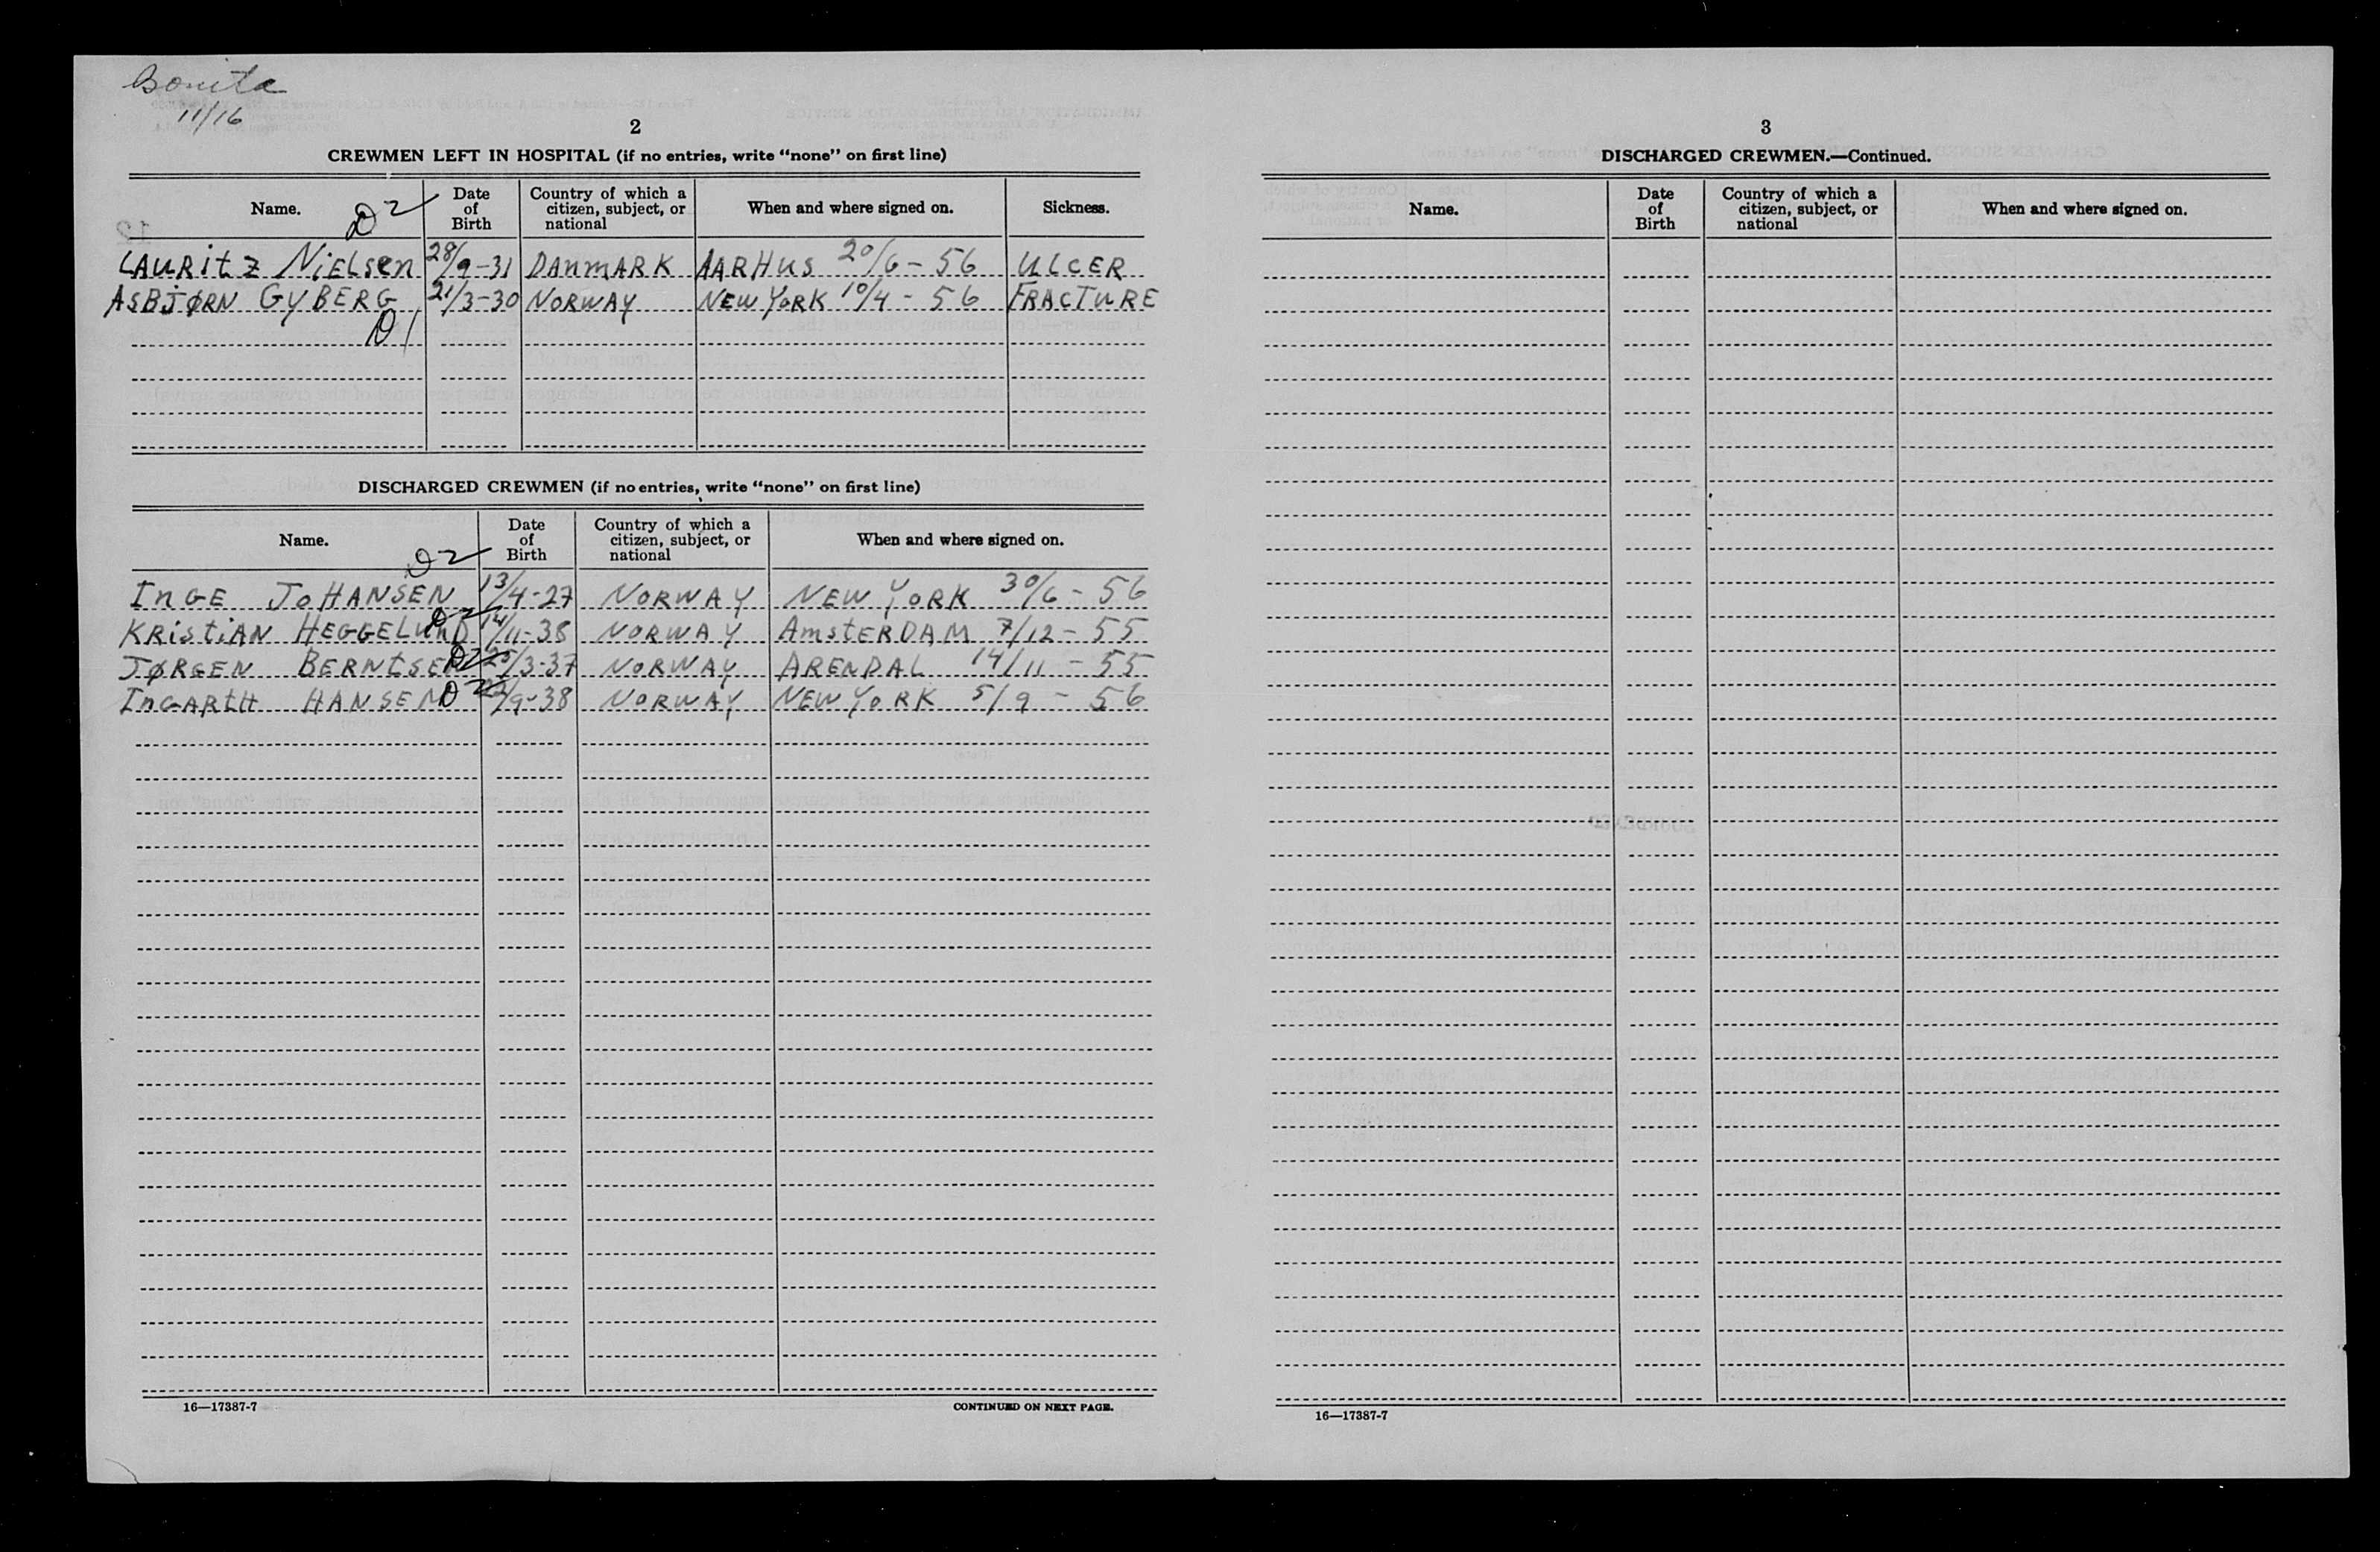 Bonita
11/16
2
CREWMEN LEFT IN HOSPITAL (if no entries, write "none" on first line)
Name. D2 Date of Birth Country of which a citizen, subject, or national When and where signed on. Sickness.
LAURITZ NIELSEN 28/9-31 DANMARK AARHUS 20/6-56 ULCER
ASBJØRN GYBERG 21/3-30 NORWAY NEW YORK 10/4-56 FRACTURE
D1
DISCHARGED CREWMEN (if no entries, write "none" on first line)
Name. D2 Date of Birth Country of which a citizen, subject, or national When and where signed on.
INGE JOHANSEN 13/4-27 NORWAY NEW YORK 30/6-56
KRISTIAN HEGGELUND D2 14/11-38 NORWAY AMSTERDAM 7/12-55
JØRGEN BERNTSEN D2 25/3-37 NORWAY ARENDAL 14/11-55
INGARTH HANSEN D2 /9-38 NORWAY NEW YORK 5/9-56
16—17387-7 CONTINUED ON NEXT PAGE.
3
DISCHARGED CREWMEN.—Continued.
Name. Date of Birth Country of which a citizen, subject, or national When and where signed on.
16—17387-7